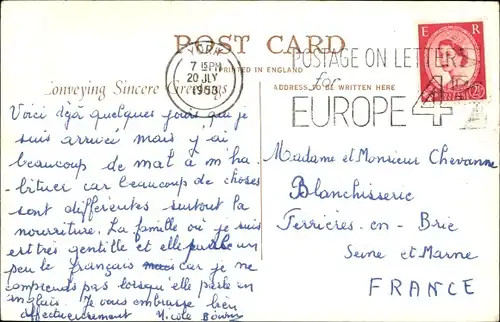 POST CARD
PRINTED IN ENGLAND
ADDRESS TO BE WRITTEN HERE
YORK
7 15PM
20 JLY
1953
POSTAGE ON LETTERS
for
EUROPE 4
E R
Conveying Sincere Greetings
Voici déjà quelques jours que je
suis arrivée mais j'ai
beaucoup de mal à m'ha
-bituer car beaucoup de choses
sont différentes surtout la
nourriture. La famille où je suis
est très gentille et elle parle un
peu le français car je ne
comprends pas lorsqu'elle parle en
anglais. Je vous embrasse bien
affectueusement Nicole
Madame et Monsieur Chevanne
Blanchisserie
Ferrières-en-Brie
Seine et Marne
FRANCE